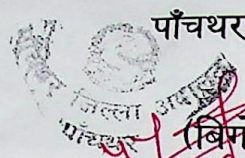 पाँचथर
जिल्ला अदालत
पाँचथर
(बिग